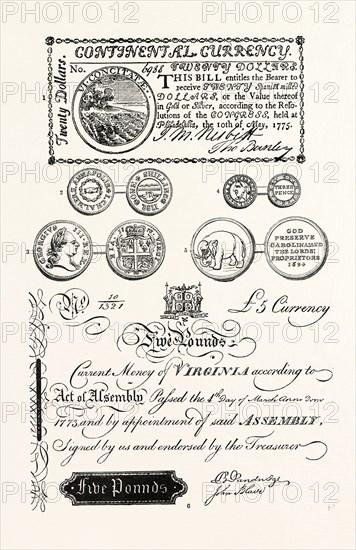 CONTINENTAL CURRENCY.
No. 6988 TWENTY DOLLARS.
Twenty Dollars.
VI CONCITATÆ.
THIS BILL entitles the Bearer to
receive TWENTY Spanish milled
DOLLARS, or the Value thereof
in Gold or Silver, according to the Reso-
lutions of the CONGRESS, held at
Philadelphia, the 10th of May, 1775.
J. M. Nesbitt
2
4
THREE
PENCE
3
GEORGIVS III REX
5
GOD
PRESERVE
CAROLINA AND
THE LORDS
PROPRIETORS
1694
No. 10
1321
£5 Currency
Five Pounds
Current Money of VIRGINIA according to
Act of Assembly Passed the Day of March Anno Dom
1773, and by appointment of said ASSEMBLY,
Signed by us and endorsed by the Treasurer
Five Pounds
John Blair
6